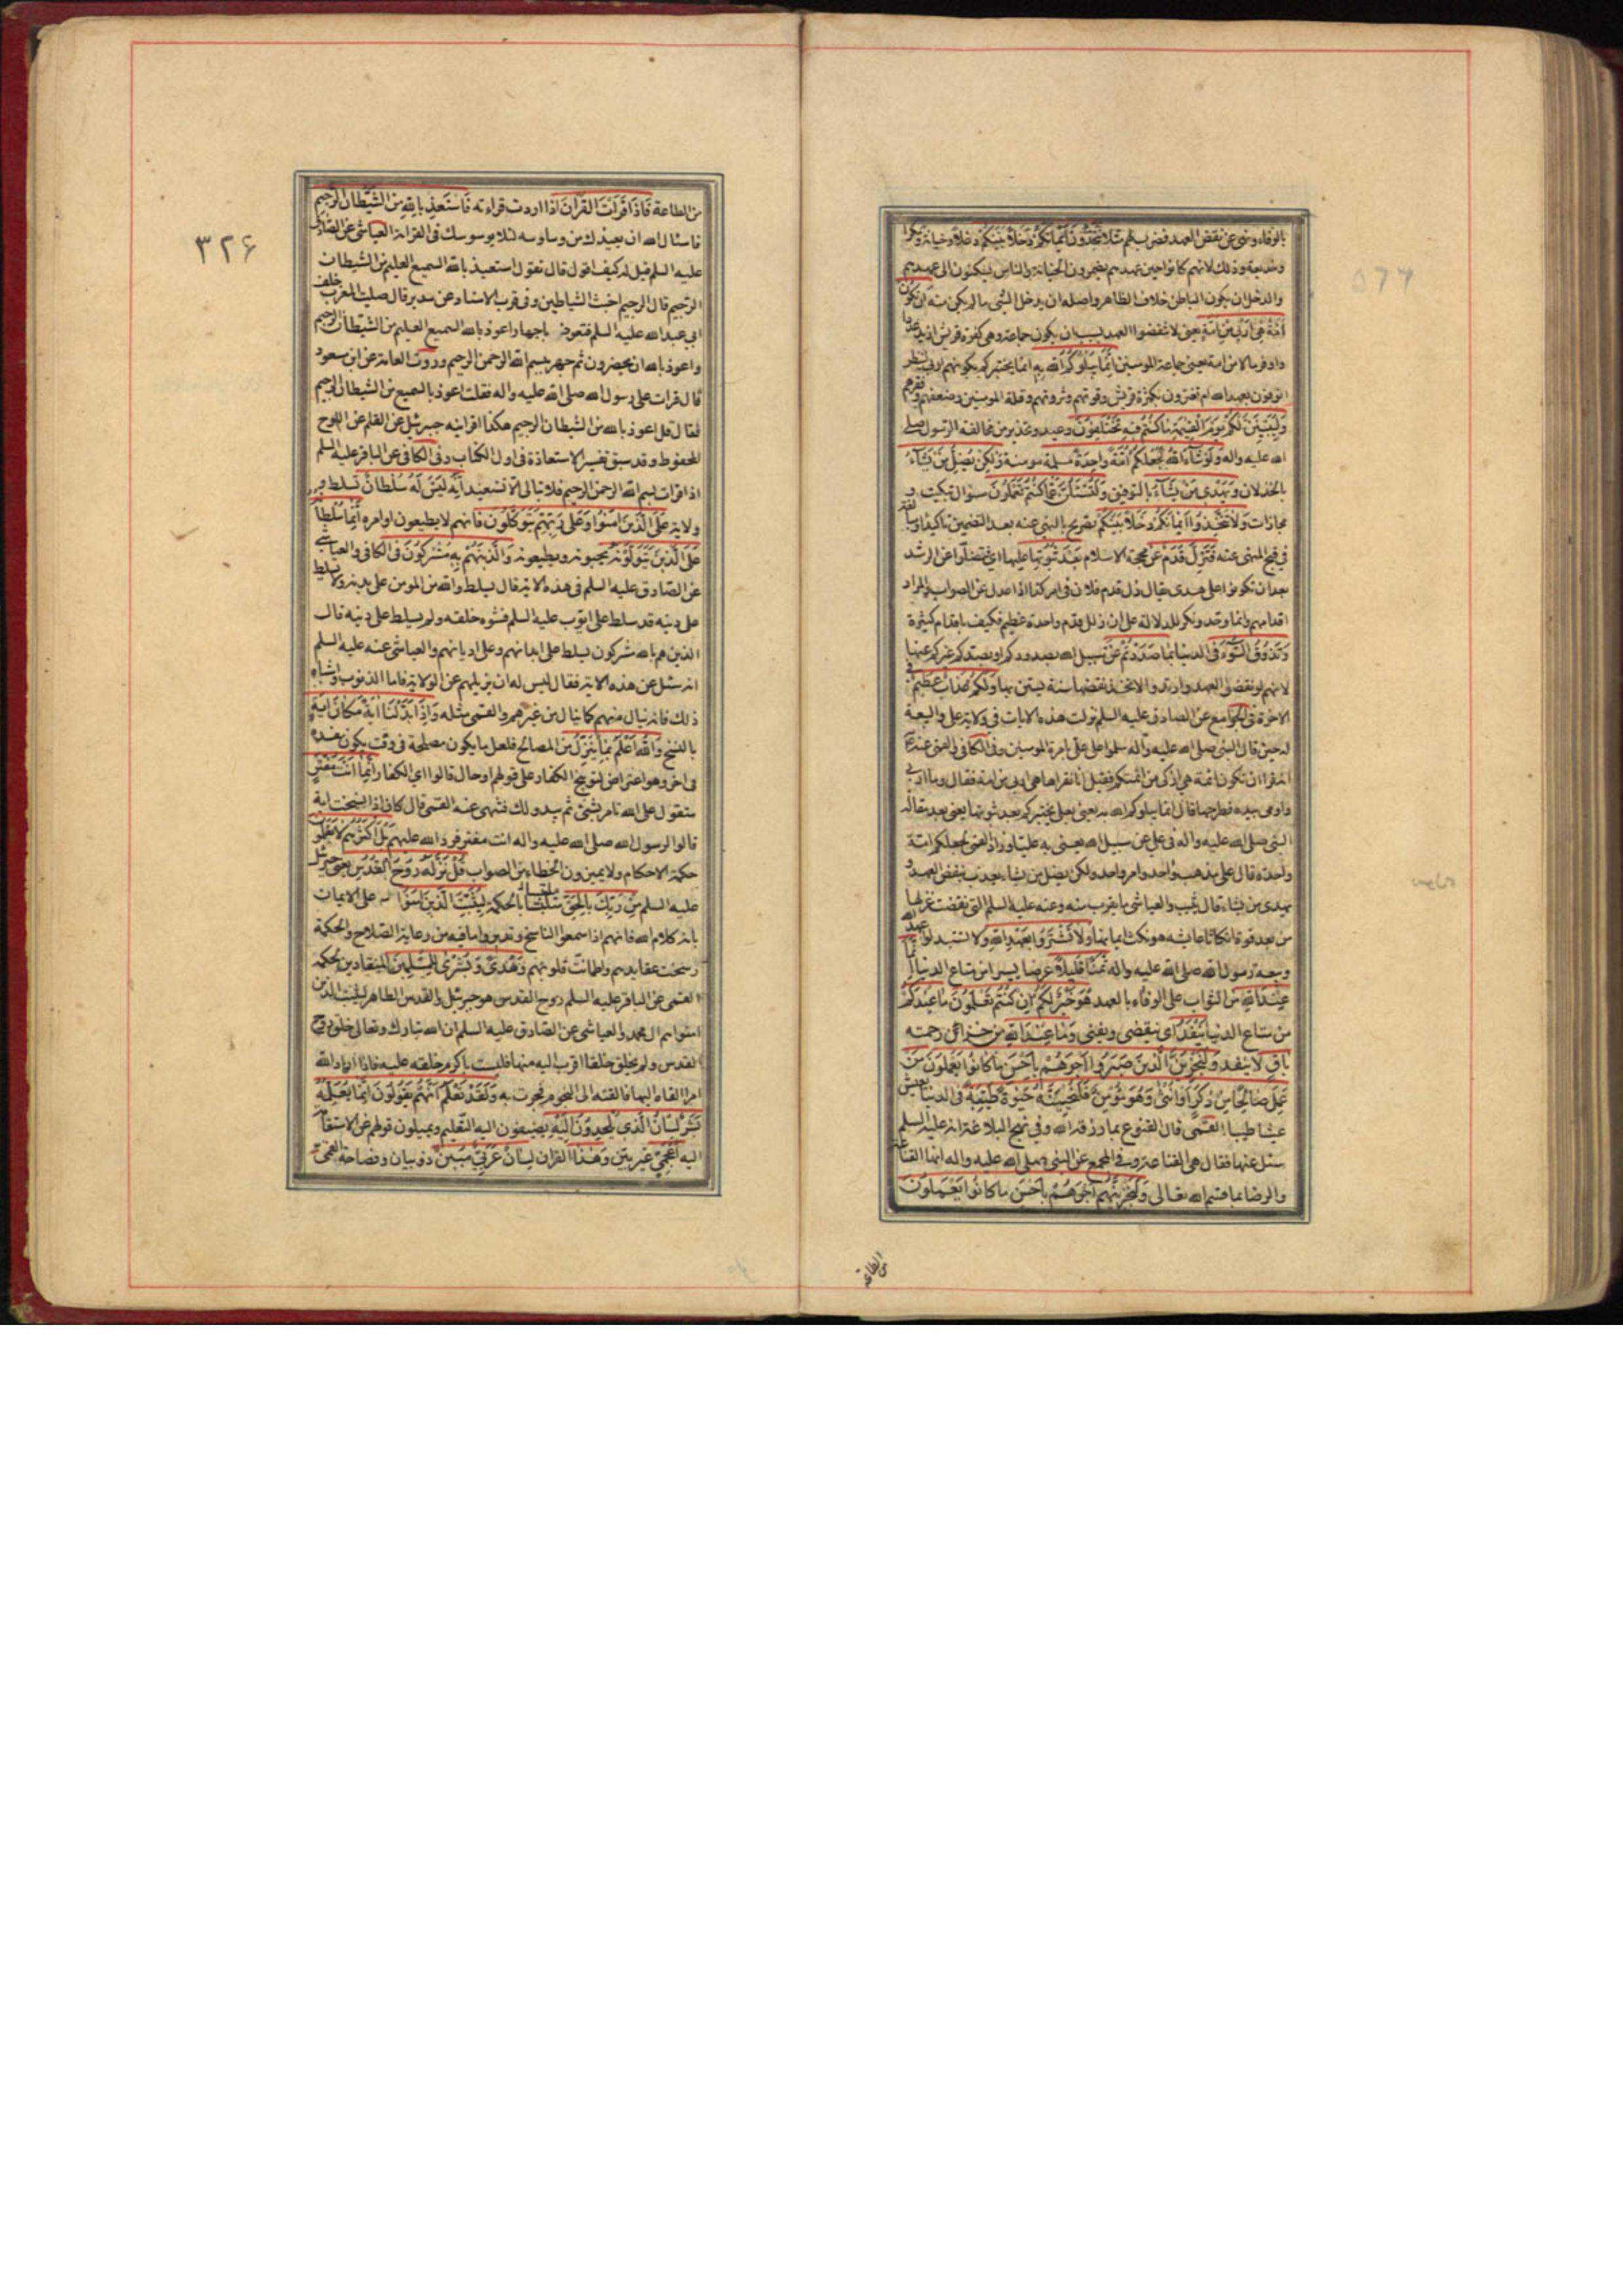 بالوفاء ونهى عن نقض العهد فضرب لهم مثلا تَتَّخِذُونَ أَيْمَانَكُمْ دَخَلًا بَيْنَكُمْ دغلا وخيانة ومكرا
وخديعة وذلك لانهم كانوا حين عهدهم يضمرون الخيانة والناس يسكنون الى عهدهم
والدخل ان يكون الباطن خلاف الظاهر واصله ان يدخل الشئ ما لم يكن منه أَنْ تَكُونَ
أُمَّةٌ هِيَ أَرْبَى مِنْ أُمَّةٍ يعنى لا تنقضوا العهد بسبب ان يكون جماعة وهى كفرة قريش ازيد عددا
واوفر مالا من امة يعنى جماعة المومنين إِنَّمَا يَبْلُوكُمُ اللَّهُ بِهِ انما يختبركم بكونهم اربى لينظر
اتوفون بعهد الله ام تغترون بكثرة قريش وقوتهم وثروتهم وقلة المومنين وضعفهم وفقرهم
وَلَيُبَيِّنَنَّ لَكُمْ يَوْمَ الْقِيٰمَةِ مَا كُنْتُمْ فِيهِ تَخْتَلِفُونَ وعيد وتحذير من مخالفة الرسول صلى
الله عليه واله وَلَوْ شَاءَ اللَّهُ لَجَعَلَكُمْ أُمَّةً وَاحِدَةً مسلمة مومنة وَلٰكِنْ يُضِلُّ مَنْ يَشَاءُ
بالخذلان وَيَهْدِي مَنْ يَشَاءُ بالتوفيق وَلَتُسْئَلُنَّ عَمَّا كُنْتُمْ تَعْمَلُونَ سوال تبكيت و
مجازات وَلَا تَتَّخِذُوا أَيْمَانَكُمْ دَخَلًا بَيْنَكُمْ تصريح بالنهى عنه بعد التضمين تاكيدا ومبالغة
في قبح المنهى عنه فَتَزِلَّ قَدَمٌ عن محجة الاسلام بَعْدَ ثُبُوتِهَا عليها اى فتضلوا عن الرشد
بعد ان تكونوا على هدى يقال زل قدم فلان فى امر كذا اذا عدل عن الصواب والمراد
اقدامهم وانما وحد ونكر للدلالة على ان زلل قدم واحدة عظيم فكيف باقدام كثيرة
وَتَذُوقُوا السُّوءَ فى الدنيا بِمَا صَدَدْتُمْ عَنْ سَبِيلِ اللَّهِ بصدودكم او بصدكم غيركم عنها
لانهم لو نقضوا العهد وارتدوا لاتخذ نقضها سنة يستن بها وَلَكُمْ عَذَابٌ عَظِيمٌ فى
الاخرة فى الجوامع عن الصادق عليه السلم نزلت هذه الايات فى ولاية على والبيعة
له حين قال النبى صلى الله عليه واله سلموا على على بامرة المومنين وفى الكافى والقمى عنه ع
انه قرا ان تكون ائمة هى ازكى من ائمتكم فقيل انا نقراها هى اربى من امة فقال وما اربى
واومى بيده فطرحها قال انما يبلوكم الله به يعنى بعلى يختبركم بعد ثبوتها يعنى بعد مقالة
النبى صلى الله عليه واله فى على عن سبيل الله يعنى به عليا وزاد القمى لجعلكم امة
واحدة قال على مذهب واحد وامر واحد ولكن يضل من يشاء قال يعذب بنقض العهد و
يهدى من يشاء قال يثيب والعياشى ما يقرب منه وعنه عليه السلم التى نقضت غزلها
من بعد قوة انكاثا عايشه هو نكث ايمانها وَلَا تَشْتَرُوا بِعَهْدِ اللَّهِ ولا تستبدلوا عهد الله
وبيعة رسول الله صلى الله عليه واله ثَمَنًا قَلِيلًا عرضا يسيرا من متاع الدنيا إِنَّمَا
عِنْدَ اللَّهِ من الثواب على الوفاء بالعهد هُوَ خَيْرٌ لَكُمْ إِنْ كُنْتُمْ تَعْلَمُونَ مَا عِنْدَكُمْ
من متاع الدنيا يَنْفَدُ اى ينقضى ويفنى وَمَا عِنْدَ اللَّهِ من خزائن رحمته
بَاقٍ لا ينفد وَلَنَجْزِيَنَّ الَّذِينَ صَبَرُوا أَجْرَهُمْ بِأَحْسَنِ مَا كَانُوا يَعْمَلُونَ مَنْ
عَمِلَ صَالِحًا مِنْ ذَكَرٍ أَوْ أُنْثَى وَهُوَ مُؤْمِنٌ فَلَنُحْيِيَنَّهُ حَيٰوةً طَيِّبَةً فى الدنيا يعيش
عيشا طيبا القمى قال القنوع بما رزقه الله وفى نهج البلاغة انه عليه السلم
سئل عنها فقال هى القناعة وفى المجمع عن النبى صلى الله عليه واله انها القناعة
والرضا بما قسم الله تعالى وَلَنَجْزِيَنَّهُمْ أَجْرَهُمْ بِأَحْسَنِ مَا كَانُوا يَعْمَلُونَ
من الطاعة
٣٢۶
من الطاعة فَإِذَا قَرَأْتَ الْقُرْآنَ اذا اردت قراءته فَاسْتَعِذْ بِاللَّهِ مِنَ الشَّيْطَانِ الرَّجِيمِ
فاسئال الله ان يعيذك من وساوسه لئلا يوسوسك فى القراءة العياشى عن الصادق
عليه السلم قيل له كيف اقول قال تقول استعيذ بالله السميع العليم من الشيطان
الرجيم قال الرجيم اخبث الشياطين وفى قرب الاسناد عن سدير قال صليت المغرب خلف
ابى عبد الله عليه السلم فتعوذ باجهار اعوذ بالله السميع العليم من الشيطان الرجيم
واعوذ بالله ان يحضرون ثم جهر ببسم الله الرحمن الرحيم وروت العامة عن ابن مسعود
قال قرات على رسول الله صلى الله عليه واله فقلت اعوذ بالسميع من الشيطان الرجيم
فقال قل اعوذ بالله من الشيطان الرجيم هكذا اقرانيه جبرئيل عن القلم عن اللوح
المحفوظ وقد سبق تفسير الاستعاذة فى اول الكتاب وفى الكافى عن الباقر عليه السلم
اذا قرات بسم الله الرحمن الرحيم فلا تبالى الا تستعيذ إِنَّهُ لَيْسَ لَهُ سُلْطَانٌ تسلط و
ولاية عَلَى الَّذِينَ آمَنُوا وَعَلَى رَبِّهِمْ يَتَوَكَّلُونَ فانهم لا يطيعون اوامره إِنَّمَا سُلْطَانُهُ
عَلَى الَّذِينَ يَتَوَلَّوْنَهُ يحبونه ويطيعونه وَالَّذِينَ هُمْ بِهِ مُشْرِكُونَ فى الكافى والعياشى
عن الصادق عليه السلم فى هذه الاية قال يسلط والله من المومن على بدنه ولا يسلط
على دينه قد سلط على ايوب عليه السلم فشوه خلقه ولم يسلط على دينه قال
الذين هم بالله مشركون يسلط على ابدانهم وعلى اديانهم والعياشى عنه عليه السلم
انه سئل عن هذه الاية فقال ليس له ان يزيلهم عن الولاية فاما الذنوب واشباه
ذلك فانه ينال منهم كما ينال من غيرهم والقمى مثله وَإِذَا بَدَّلْنَا آيَةً مَكَانَ آيَةٍ
بالنسخ وَاللَّهُ أَعْلَمُ بِمَا يُنَزِّلُ من المصالح فلعل ما يكون مصلحة فى وقت يكون مفسدة
فى اخر وهو اعتراض لتوبيخ الكفار على قولهم او حال قالوا اى الكفار إِنَّمَا أَنْتَ مُفْتَرٍ
متقول على الله تامر بشئ ثم يبدو لك فتنهى عنه القمى قال كان اذا نسخت اية
قالوا لرسول الله صلى الله عليه واله انت مفتر فرد الله عليهم بَلْ أَكْثَرُهُمْ لَا يَعْلَمُونَ
حكمة الاحكام ولا يميزون الخطاء من الصواب قُلْ نَزَّلَهُ رُوحُ الْقُدُسِ يعنى جبرئيل
عليه السلم مِنْ رَبِّكَ بِالْحَقِّ متلبسا بالحكمة لِيُثَبِّتَ الَّذِينَ آمَنُوا على الايمان
بانه كلام الله فانهم اذا سمعوا الناسخ وتدبروا ما فيه من رعاية الصلاح والحكمة
رسخت عقايدهم واطمانت قلوبهم وَهُدًى وَبُشْرَى لِلْمُسْلِمِينَ المنقادين لحكمه
القمى عن الباقر عليه السلم روح القدس هو جبرئيل والقدس الطاهر ليثبت الذين
امنوا هم ال محمد والعياشى عن الصادق عليه السلم ان الله تبارك وتعالى خلق روح
القدس ولم يخلق خلقا اقرب اليه منها وليست باكرم خلقه عليه فاذا اراد الله
امرا القاه اليها فالقته الى النجوم فجرت به وَلَقَدْ نَعْلَمُ أَنَّهُمْ يَقُولُونَ إِنَّمَا يُعَلِّمُهُ
بَشَرٌ لِسَانُ الَّذِي يُلْحِدُونَ إِلَيْهِ يضيفون اليه التعليم ويميلون قولهم عن الاستقامة
اليه أَعْجَمِيٌّ غير بين وَهٰذَا القران لِسَانٌ عَرَبِيٌّ مُبِينٌ ذو بيان وفصاحة القمى